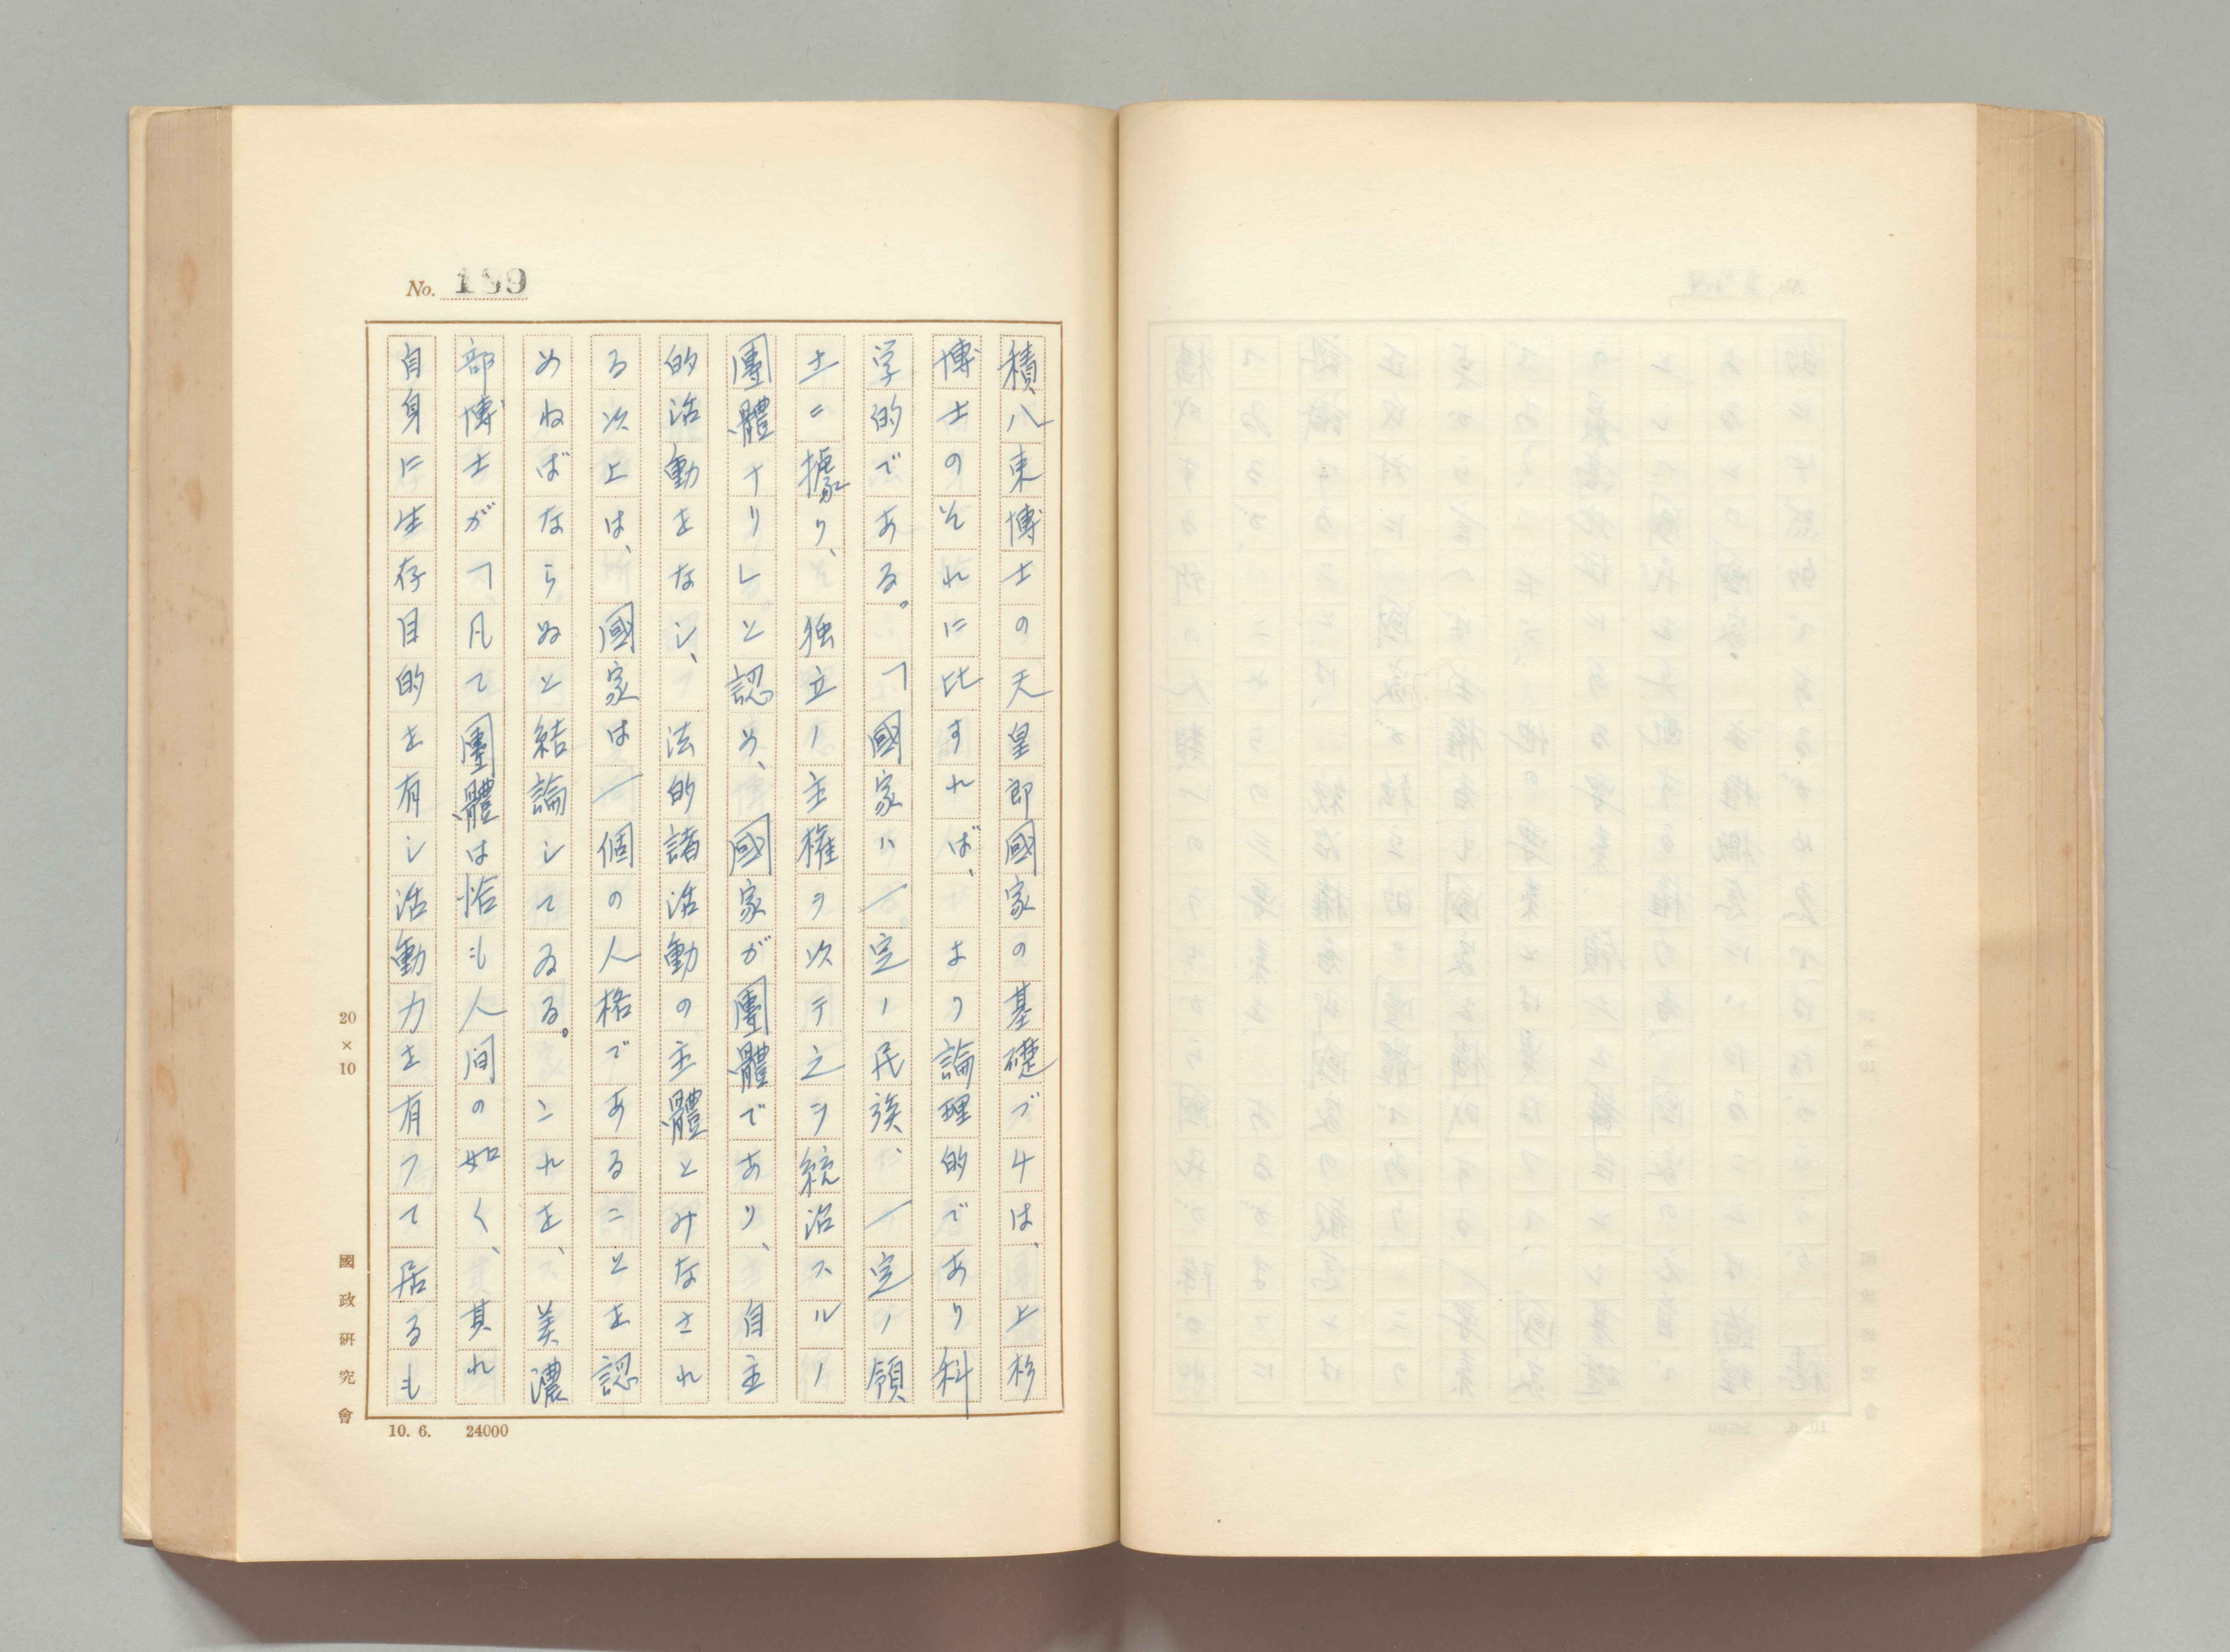 No. 199
積八束博士の天皇即國家の基礎づけは、上杉
博士のそれに比すれば、より論理的であり科
学的である。「國家ハ一定ノ民族、一定ノ領
土ニ據り、独立ノ主権ヲ以テ之ヲ統治スルノ
團體ナリ」と認め、國家が團體であり、自主
的活動をなし、法的諸活動の主體とみなされ
る以上は、國家は一個の人格であることを認
めねばならぬと結論してゐる。これを、美濃
部博士が「凡て團體は恰も人间の如く、其れ
自身に生存目的を有し活動力を有つて居るも
20×10
國政研究會
10. 6. 24000